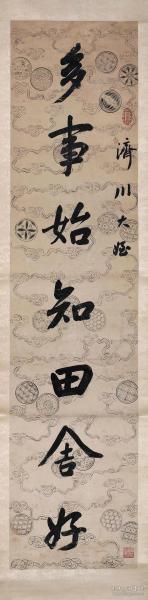 濟川大姪
多事始知田舍好